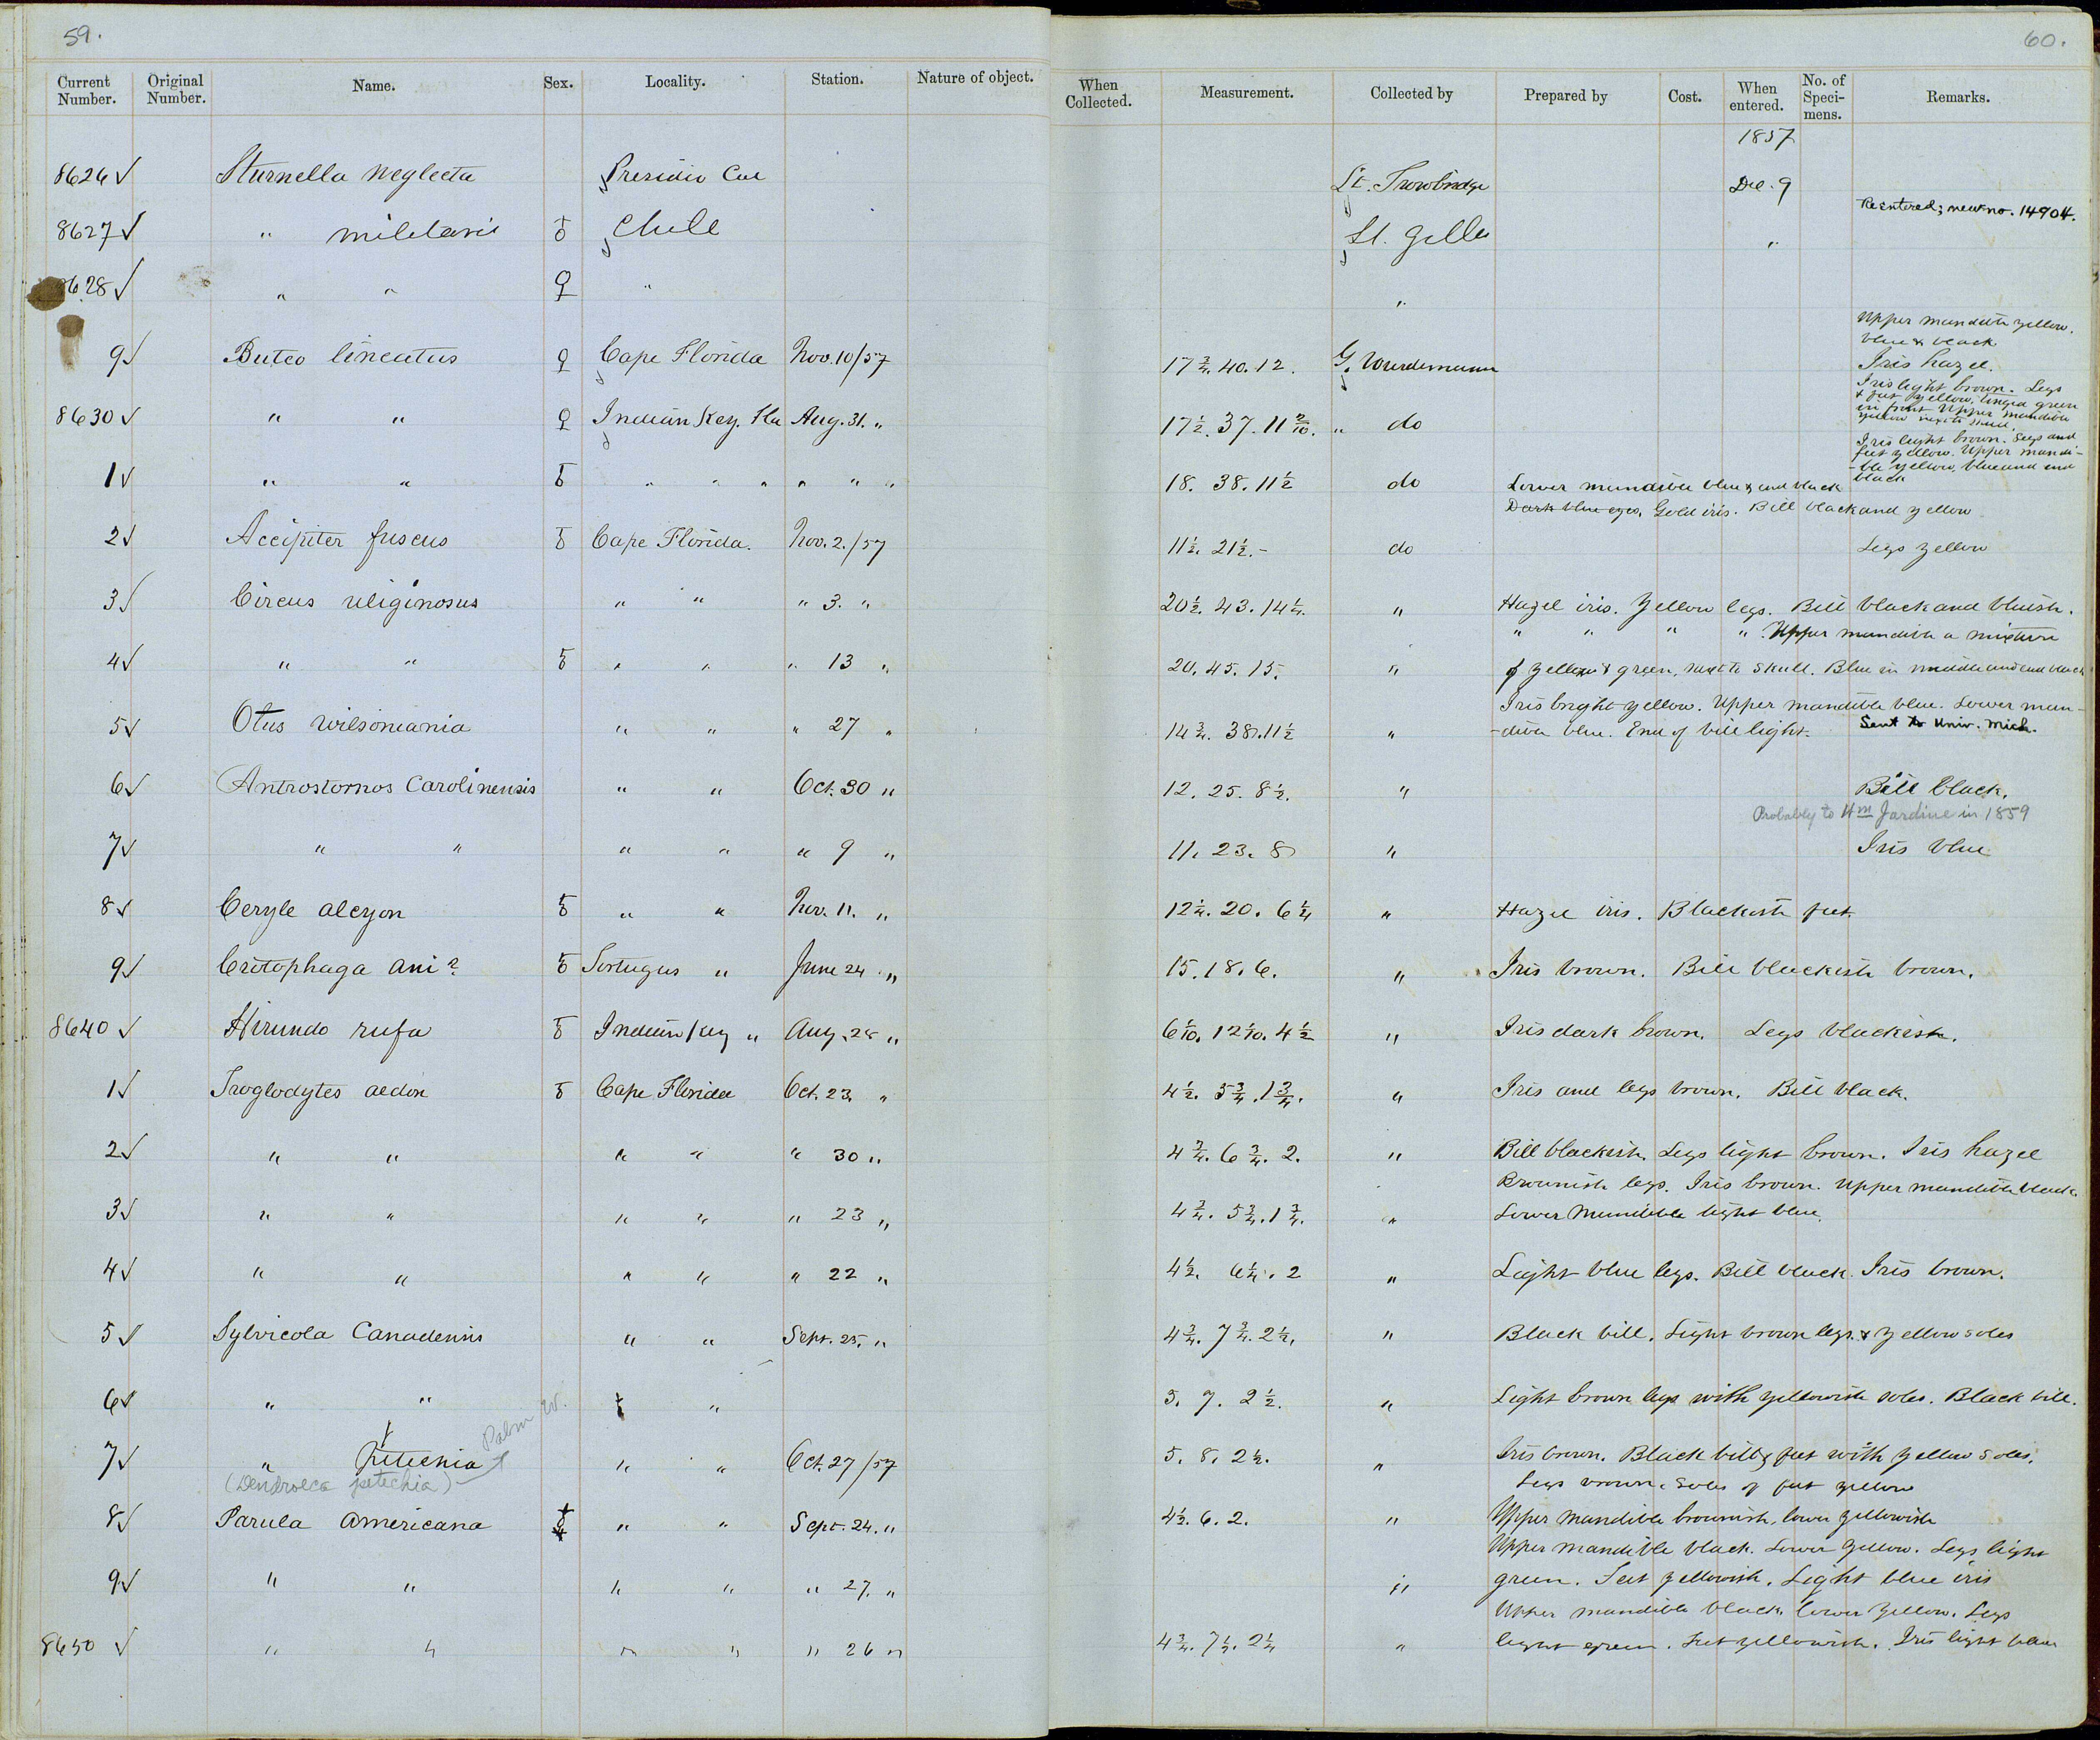 59.
60.
Current Number. Original Number. Name. Sex. Locality. Station. Nature of object. When Collected. Measurement. Collected by Prepared by Cost. When entered. No. of Speci-mens. Remarks.
1857
8626 ✓ Sturnella neglecta Presidio Cal Lt. Trowbridge Dec. 9
Reentered; new no. 14904.
8627 ✓ " militaris ♂ Chile Lt. Gillis "
8628 ✓ " " ♀ " "
Upper mandible yellow,
blue & black
9 ✓ Buteo lineatus ♀ Cape Florida Nov. 10/57 17 3/4. 40. 12. G. Wurdemann Iris hazel.
Iris light brown. Legs
& feet yellow, tinged green
in front Upper mandible
yellow next to skull.
8630 ✓ " " ♀ Indian Key. Fla Aug. 31. " 17 1/2. 37. 11 2/10. " do
Iris light brown. Legs and
feet yellow. Upper mandi-
-ble yellow, blue and end
black
1 ✓ " " ♂ " " " " " " 18. 38. 11 1/2 do Lower mandible blue & end black
Dark blue eyes. Gold iris. Bill black and yellow
2 ✓ Accipiter fuscus ♂ Cape Florida. Nov. 2./57 11 1/2. 21 1/2. - do Legs yellow
3 ✓ Circus uliginosus " " " 3. " 20 1/2. 43. 14 1/4. " Hazel iris. Yellow legs. Bill black and bluish.
" " " " Upper mandible a mixture
4 ✓ " " ♂ " " " 13 " 20. 45. 15. " of yellow & green, next to skull. Blue in middle and end black
Iris bright yellow. Upper mandible blue. Lower man-
5 ✓ Otus wilsoniania " " " 27 " 14 3/4. 38. 11 1/2 " -dible blue. End of bill light. Sent to Univ. Mich.
6 ✓ Antrostomos Carolinensis " " Oct. 30 " 12. 25. 8 1/2. " Bill black.
Probably to Wm Jardine in 1859
7 ✓ " " " " " 9 " 11. 23. 8 " Iris blue
8 ✓ Ceryle alcyon ♂ " " Nov. 11. " 12 1/4. 20. 6 1/4 " Hazel iris. Blackish feet
9 ✓ Crotophaga ani? ♂ Tortugas " June 24 " 15. 18. 6. " Iris brown. Bill blackish brown.
8640 ✓ Hirundo rufa ♂ Indian Key " Aug. 28 " 6 1/10. 12 1/10. 4 1/2 " Iris dark brown. Legs blackish.
1 ✓ Troglodytes aedon ♂ Cape Florida Oct. 23. " 4 1/2. 5 3/4. 1 3/4. " Iris and legs brown. Bill black.
2 ✓ " " " " " 30 " 4 3/4. 6 3/4. 2. " Bill blackish. Legs light brown. Iris hazel
Brownish legs. Iris brown. Upper mandible black
3 ✓ " " " " " 23 " 4 3/4. 5 3/4. 1 3/4. " Lower Mandible light blue.
4 ✓ " " " " " 22 " 4 1/2. 6 1/4. 2 " Light blue legs. Bill black. Iris brown.
5 ✓ Sylvicola Canadensis " " Sept. 25. " 4 3/4. 7 3/4. 2 1/2. " Black bill. Light brown legs & yellow soles
6 ✓ " " " " 5. 7. 2 1/2. " Light brown legs with yellowish soles. Black bill.
Palm W.
7 ✓ " Petechia " " Oct. 27/57 5. 8. 2 1/2. " Iris brown. Black bill & feet with yellow soles.
(Dendroeca petechia)
Legs brown. Soles of feet yellow
8 ✓ Parula Americana ♂ " " Sept. 24. " 4 1/2. 6. 2. " Upper mandible brownish, lower yellowish
Upper mandible black. Lower yellow. Legs light
9 ✓ " " " " " 27. " " green. Feet yellowish. Light blue iris
Upper mandible black, lower yellow. Legs
8650 ✓ " " " " " 26 " 4 3/4. 7 1/2. 2 1/4 " light green. Feet yellowish. Iris light blue